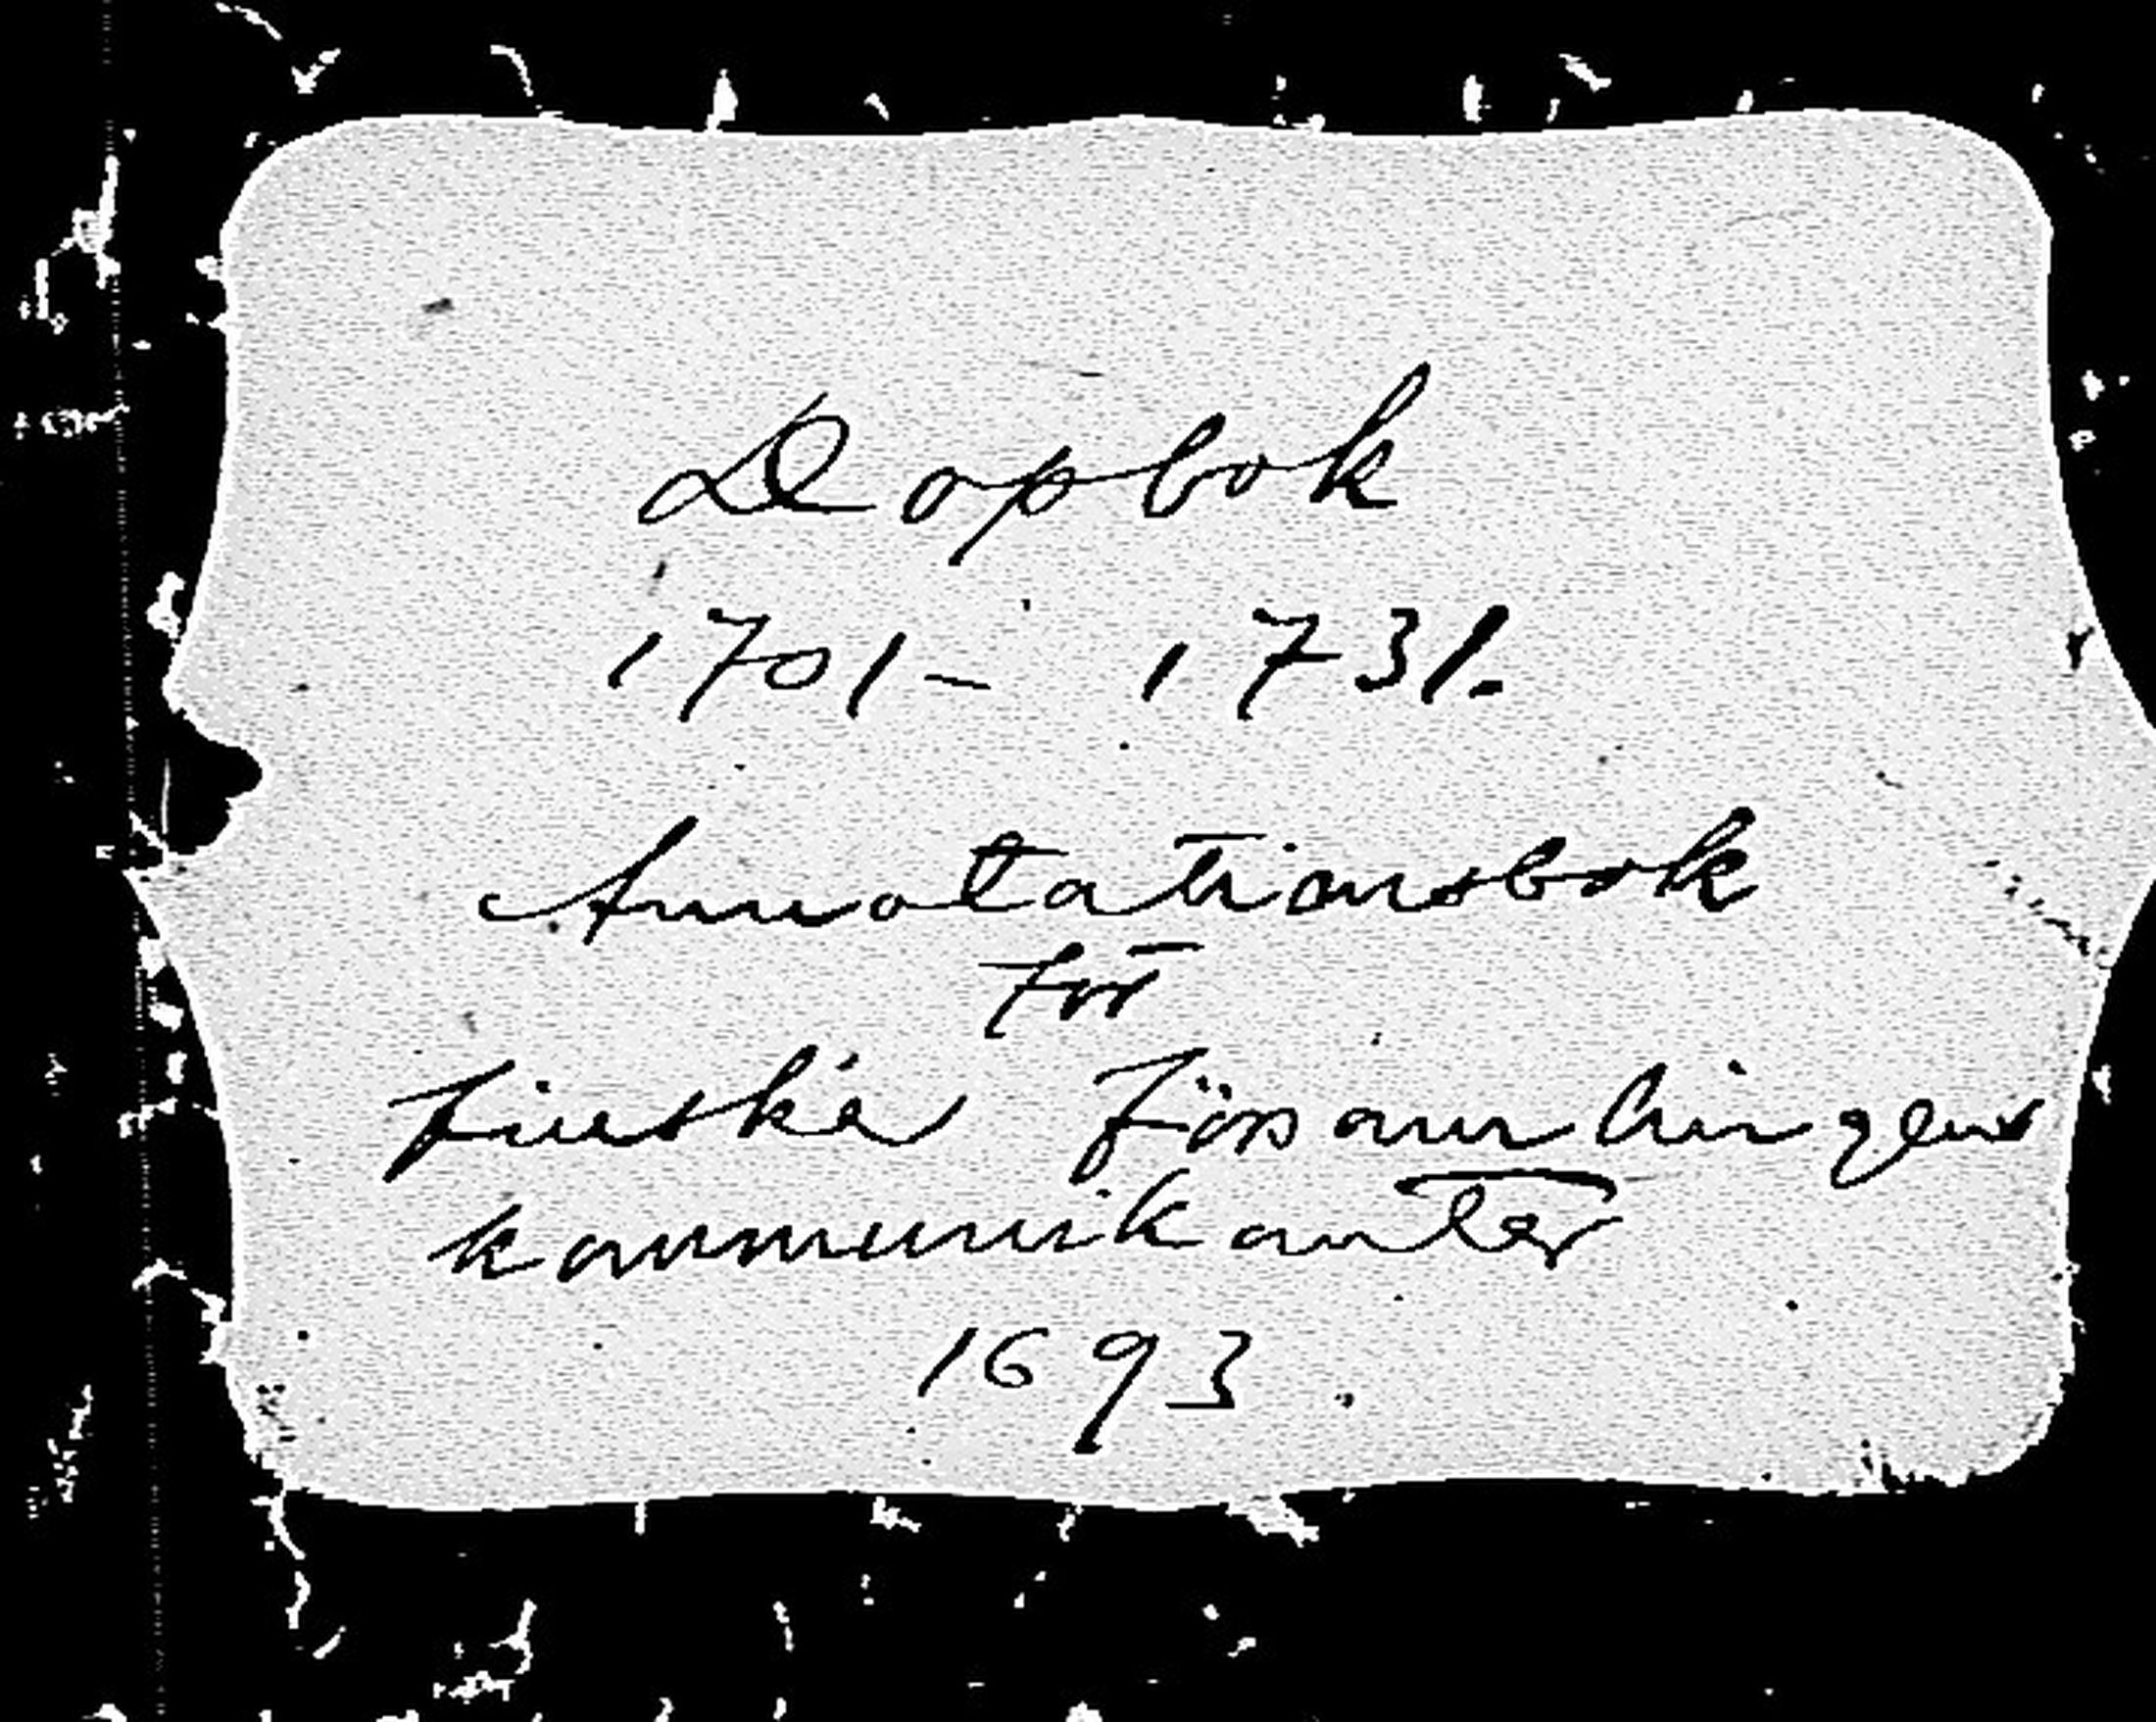 Dopbok
1701- 1731.
Annotationsbok
för
finska församlingens
kommunikanter
1693.